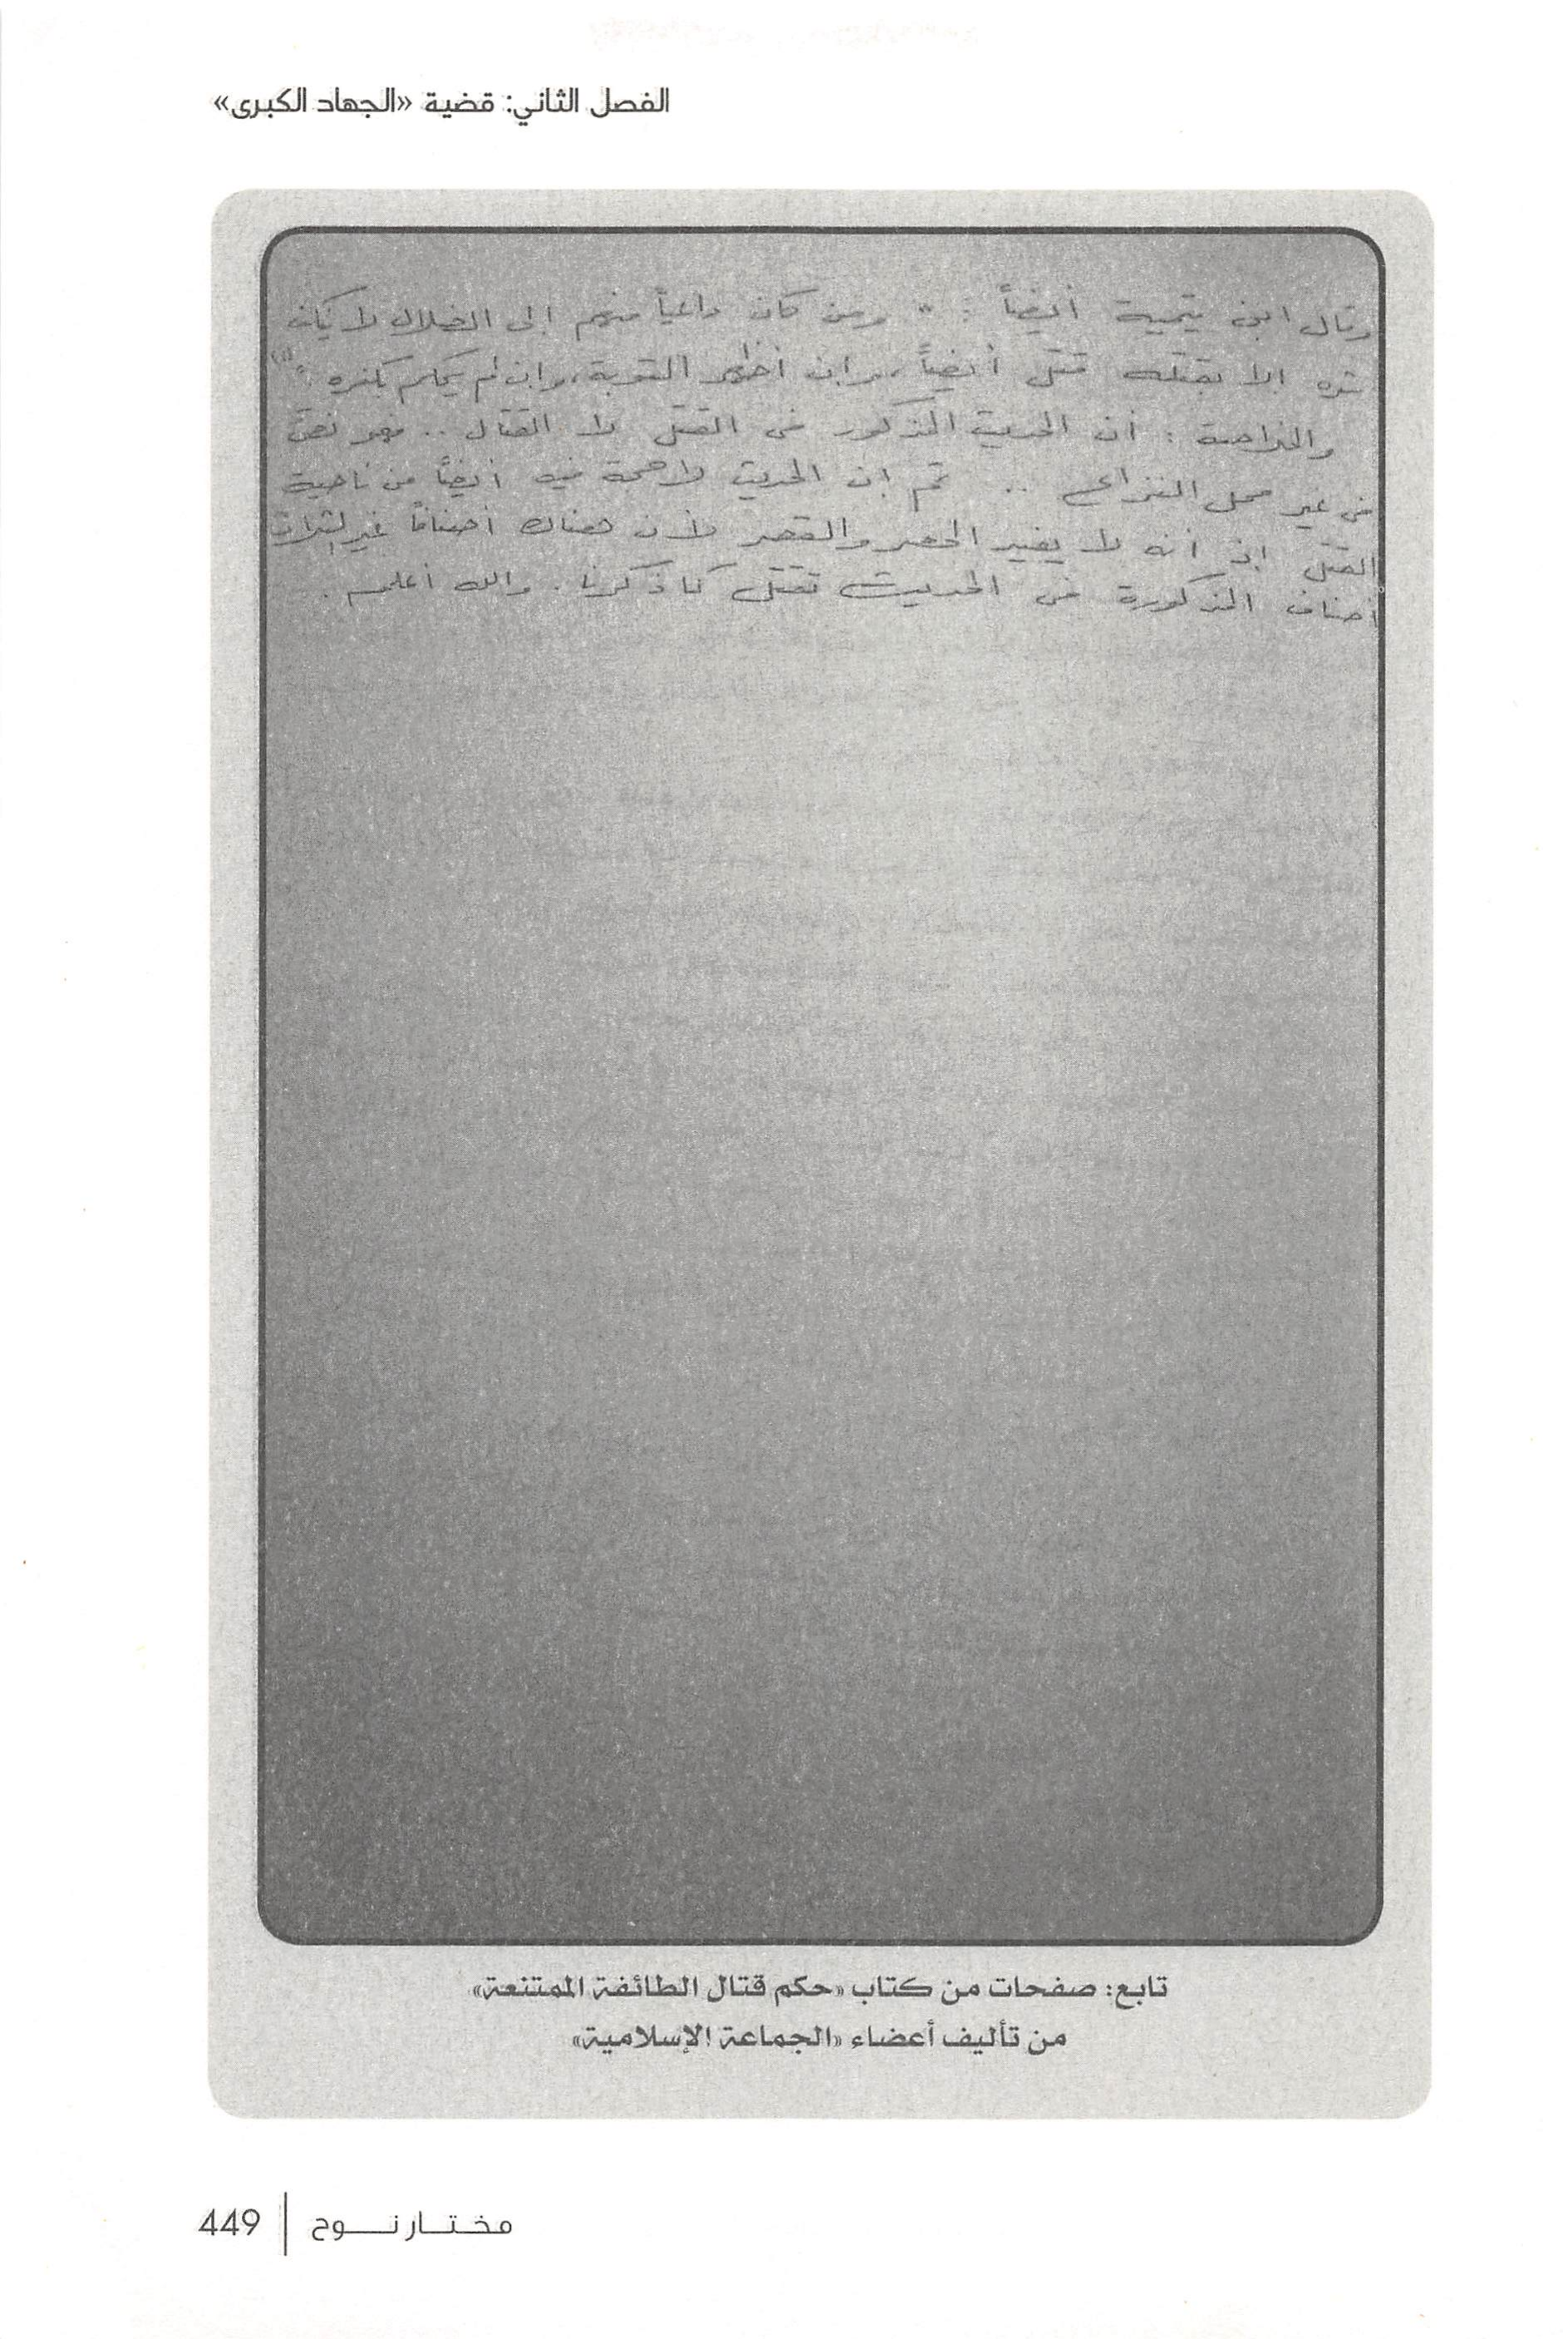 الفصل الثاني: قضية «الجهاد الكبرى»
وقال ابن تيمية أيضاً : " ومن كان داعياً منهم إلى الضلال لا ينكف
شره إلا بقتله قتل أيضاً، وإن أظهر التوبة، وإن لم يحكم بكفره." (١)
والخلاصة : أن الحديث المذكور فى القتل لا القتال .. فهو نص
فى غير محل النزاع .. ثم إن الحديث لا حجة فيه أيضاً من ناحية
القتل إذ أنه لا يفيد الحصر والقصر لأن هناك أصنافاً غير الثلاث
أصناف المذكورة فى الحديث تقتل كما ذكرنا . والله أعلم .
تابع: صفحات من كتاب «حكم قتال الطائفة الممتنعة»
من تأليف أعضاء «الجماعة الإسلامية»
مختار نوح | 449